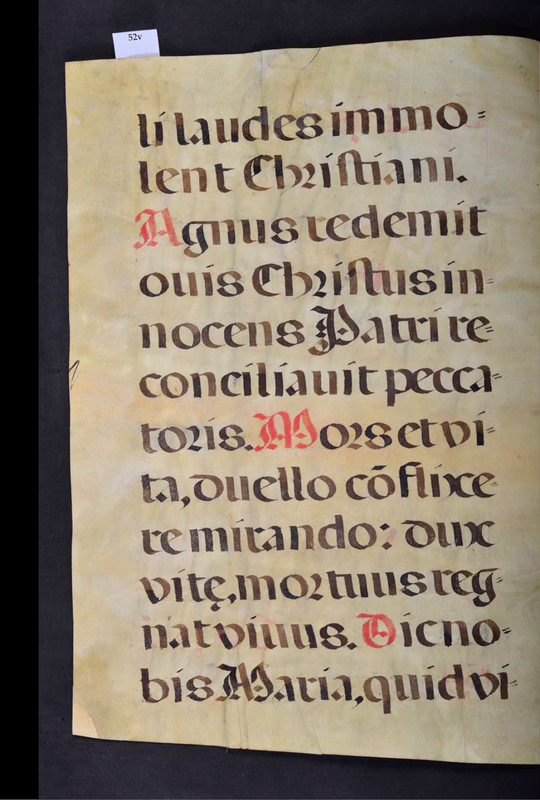 52v
li laudes immo=
lent Christiani.
Agnus redemit
ouis Christus in=
nocens Patri re=
conciliauit pecca=
toris. Mors et vi=
ta, duello cōflixe=
re mirando: dux
vitę, mortuus reg=
nat viuus. Dic no=
bis Maria, quid vi=